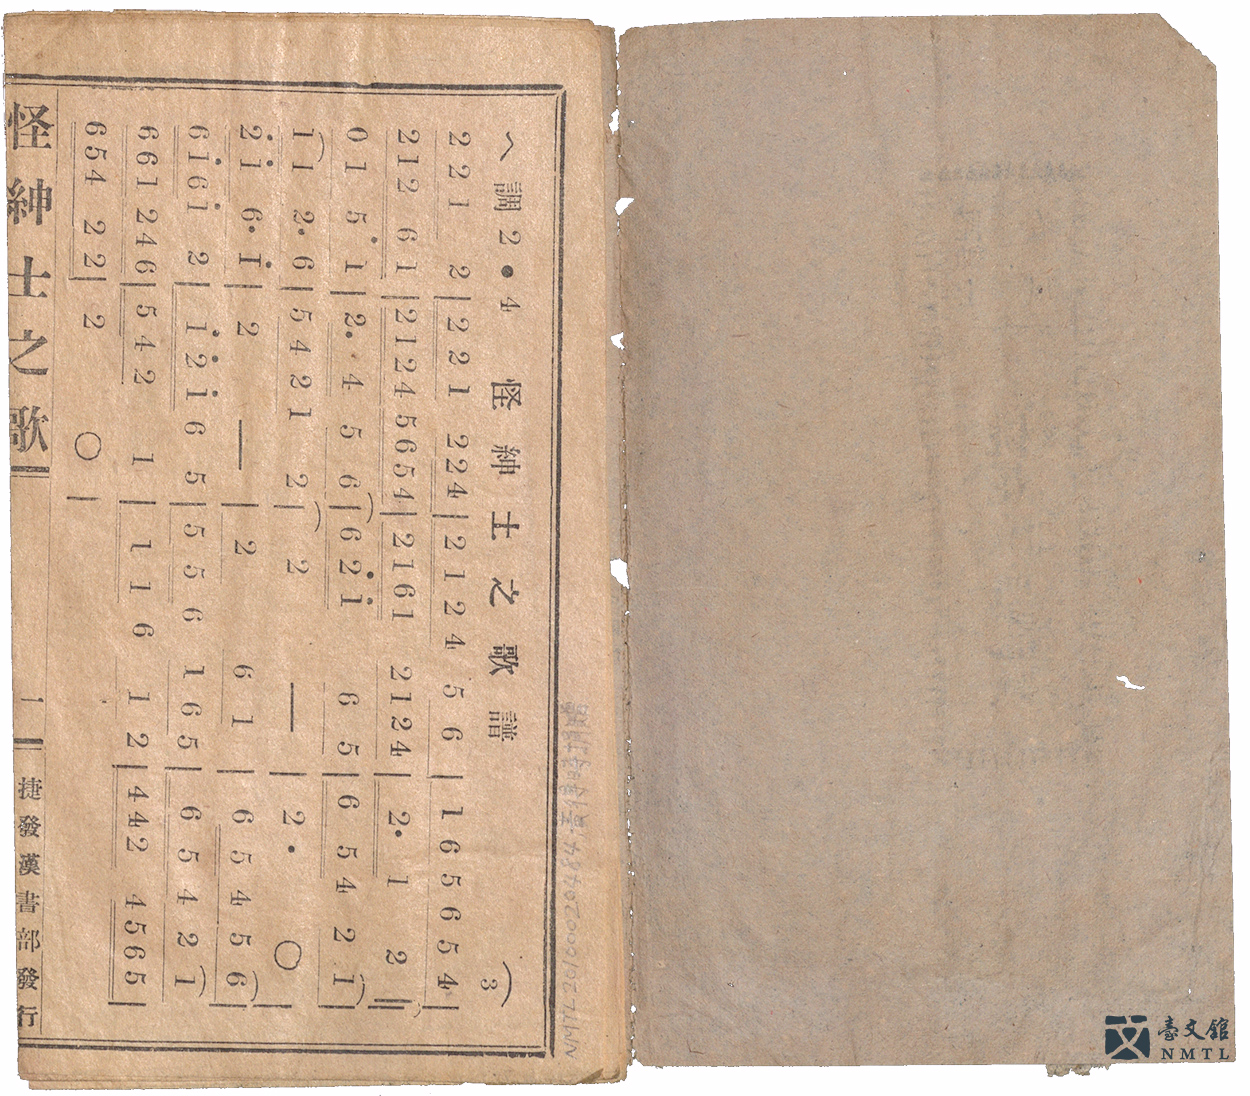 ヘ調2・4 怪紳士之歌譜 (3)
2 2 1 2 | 2 2 1 2 2 4 | 2 1 2 4 5 6 | 1 6 5 6 5 4 |
2 1 2 6 1 | 2 1 2 4 5 6 5 4 | 2 1 6 1 2 1 2 4 | 2・ 1 2 ‖
0 1 5 1 | 2・ 4 5 6 | 6 2 i 6 5 | 6 5 4 2 1 |
1 1 2・ 6 | 5 4 2 1 2 | 2 — | 2・ ○ |
2 i 6・ i | 2 — | 2 6 1 | 6 5 4 5 6 |
6 i 6 i 2 | i 2 i 6 5 | 5 5 6 1 6 5 | 6 5 4 2 1 |
6 6 1 2 4 6 | 5 4 2 1 | 1 1 6 1 2 | 4 4 2 4 5 6 5 |
6 5 4 2 2 | 2 ○ |
怪紳士之歌 一 捷發漢書部發行
NMTL20100020484 黃得時捐贈
臺文館
NMTL